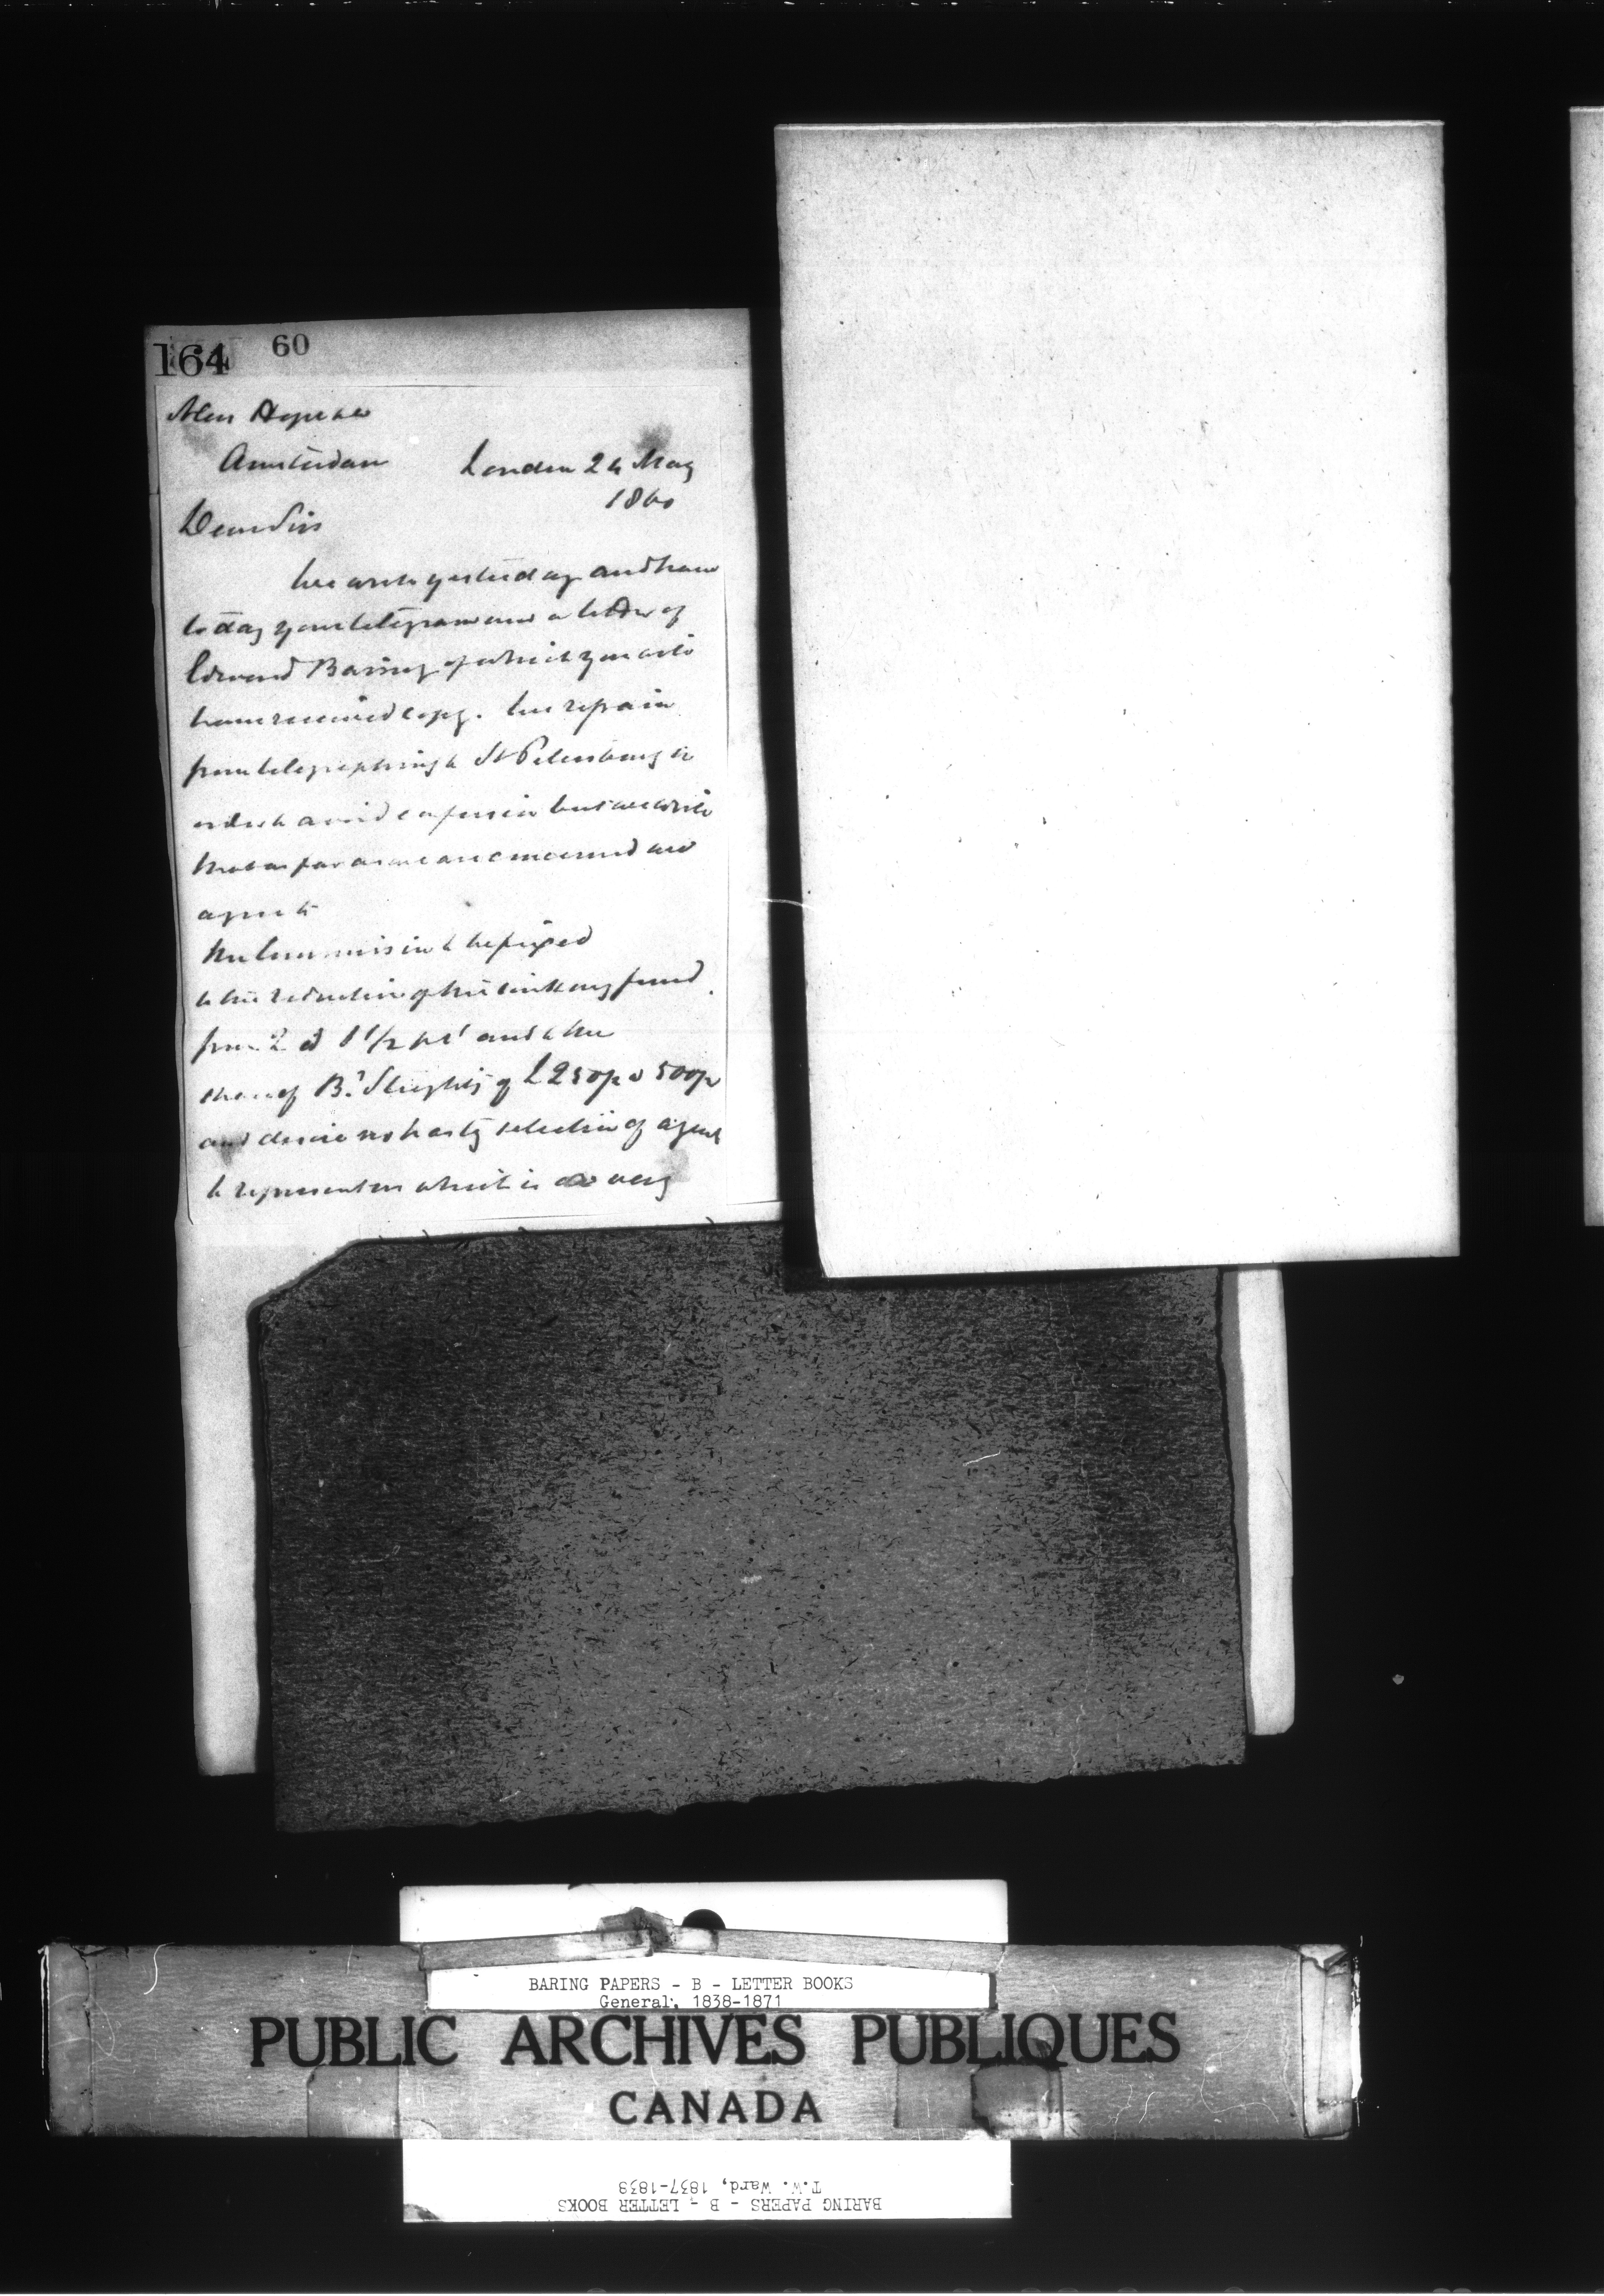 164 60
Mess Hope & Co
Amsterdam London 24 May
1860
Dear Sirs
We wrote yesterday and have
to day your telegram and a letter of
Edward Baring of which you will
have received copy. We refrain
from telegraphing to St Petersburg in
order to avoid confusion but we write
that as far as we are concerned we
agree to
the Commission to be fixed
to the reduction of the sinking fund
from 2 to 1 1/2 pct and to the
of Bd of £250 500
and desire no hasty selection of agent
to represent us which is a very
BARING PAPERS - B - LETTER BOOKS
General, 1838-1871
PUBLIC ARCHIVES PUBLIQUES
CANADA
BARING PAPERS - B - LETTER BOOKS
T.W. Ward, 1837-1838